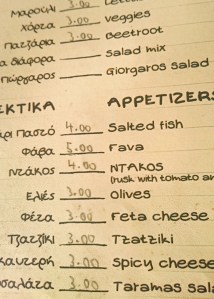 Μαρούλι 3.00
Χόρτα 3.00 Veggies
Πατζάρια 3.00 Beetroot
διάφορα Salad mix
Γιώργαρος Giorgaros salad
ΕΚΤΙΚΑ APPETIZERS
Παστό 4.00 Salted fish
Φάβα 5.00 Fava
Ντάκος 4.00 NTAKOS
(rusk with tomato an
Ελιές 3.00 Olives
Φέτα 3.00 Feta cheese
Τζατζίκι 3.00 Tzatziki
καυτερή 3.00 Spicy cheese
οσαλάτα 3.00 Taramas sala